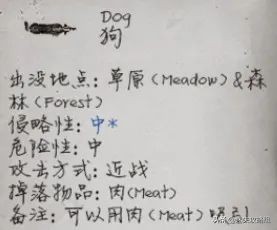 Dog
狗
出没地点：草原（Meadow）&森
林（Forest）
侵略性：中*
危险性：中
攻击方式：近战
掉落物品：肉（Meat）
备注：可以用肉（Meat）吸引